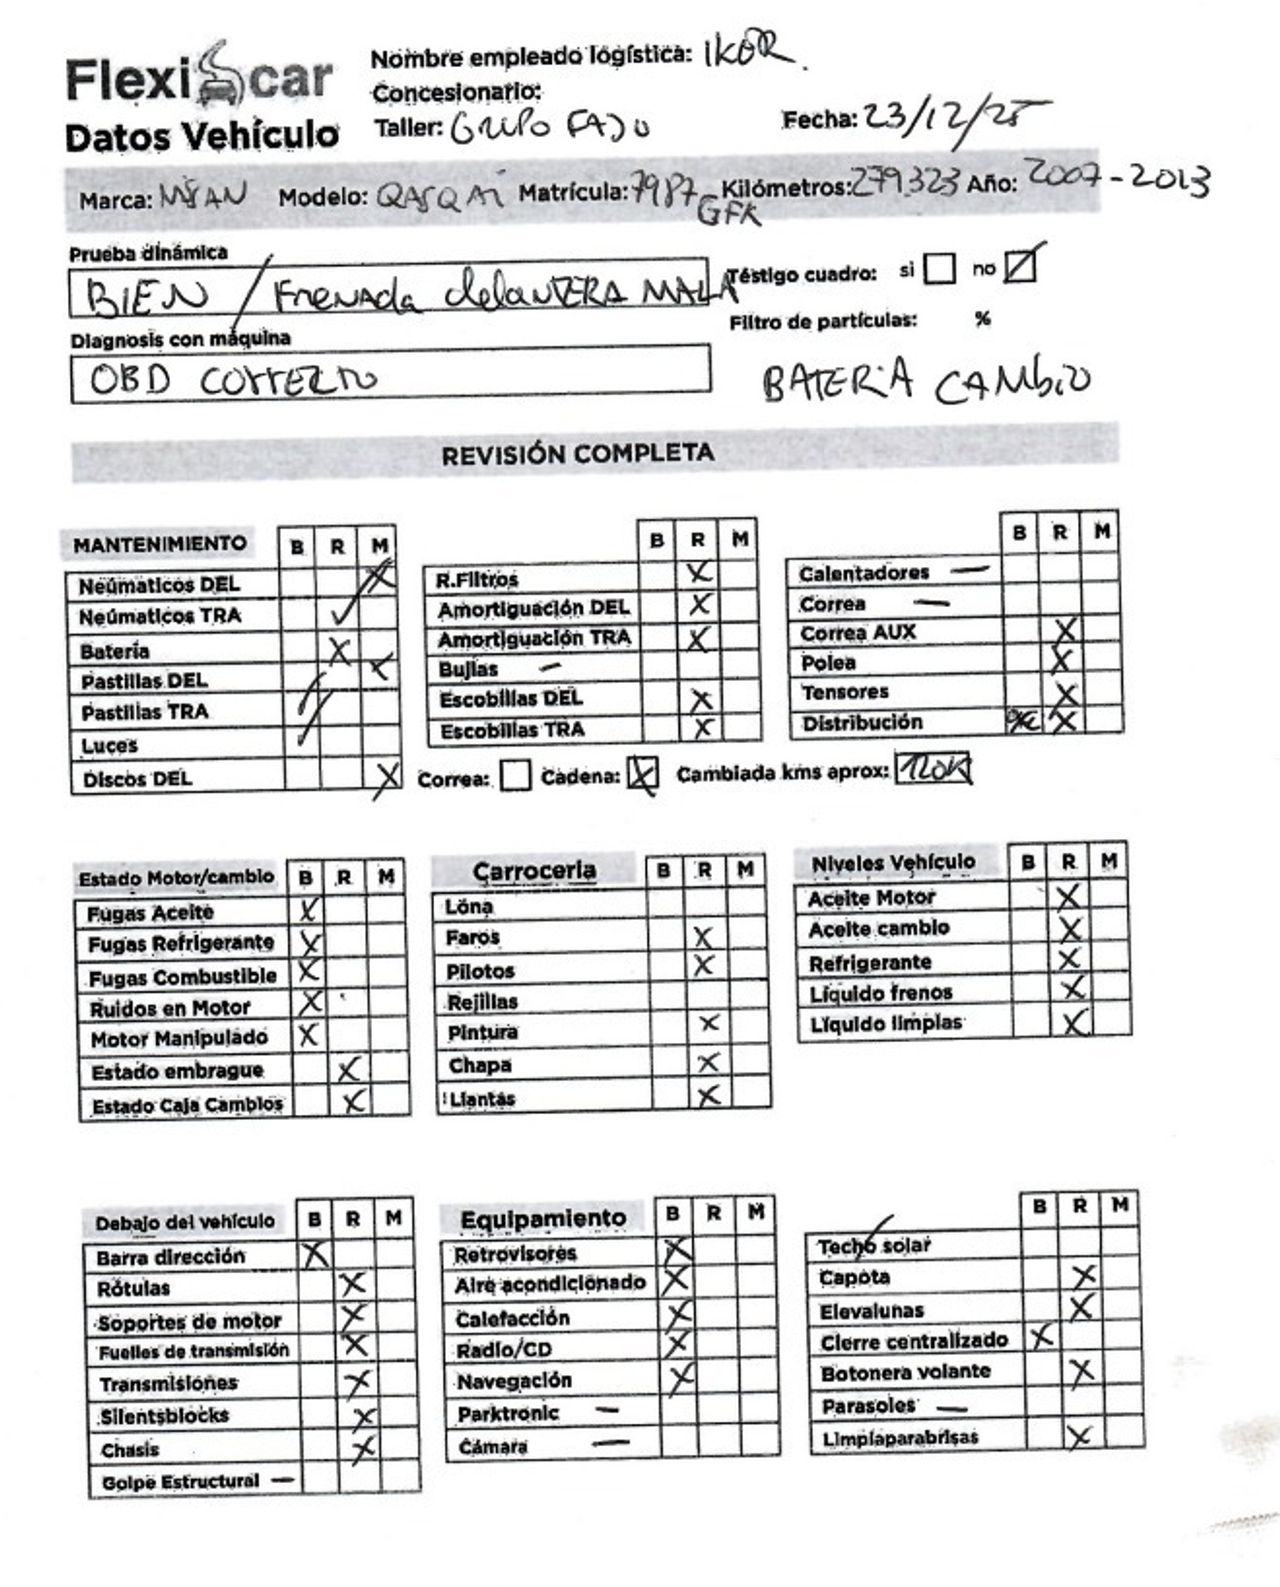 Flexicar
Nombre empleado logística: IKER.
Concesionario:
Datos Vehículo
Taller: GRUPO FAJU
Fecha: 23/12/25
Marca: NISAN Modelo: QASQAi Matrícula: 7987 GFK Kilómetros: 279.323 Año: 2007-2013
Prueba dinámica
BIEN / Frenada delantera mala
Téstigo cuadro: si no X
Filtro de partículas: %
Diagnosis con máquina
OBD correcto
BATERIA CAMBIO
REVISIÓN COMPLETA
MANTENIMIENTO B R M
Neúmaticos DEL X
Neúmaticos TRA ✓
Batería X
Pastillas DEL X
Pastillas TRA /
Luces /
Discos DEL X
B R M
R.Filtros X
Amortiguación DEL X
Amortiguación TRA X
Bujias —
Escobillas DEL X
Escobillas TRA X
B R M
Calentadores —
Correa —
Correa AUX X
Polea X
Tensores X
Distribución X
Correa: Cadena: X Cambiada kms aprox: 120K
Estado Motor/cambio B R M
Fugas Aceite X
Fugas Refrigerante X
Fugas Combustible X
Ruidos en Motor X
Motor Manipulado X
Estado embrague X
Estado Caja Cambios X
Carrocería B R M
Lona
Faros X
Pilotos X
Rejillas
Pintura X
Chapa X
Llantas X
Niveles Vehículo B R M
Aceite Motor X
Aceite cambio X
Refrigerante X
Líquido frenos X
Líquido limpias X
Debajo del vehículo B R M
Barra dirección X
Rótulas X
Soportes de motor X
Fuelles de transmisión X
Transmisiones X
Silentsblocks X
Chasis X
Golpe Estructural —
Equipamiento B R M
Retrovisores X
Aire acondicionado X
Calefacción X
Radio/CD X
Navegación X
Parktronic —
Cámara —
B R M
Techo solar
Capota X
Elevalunas X
Cierre centralizado X
Botonera volante X
Parasoles —
Limpiaparabrisas X